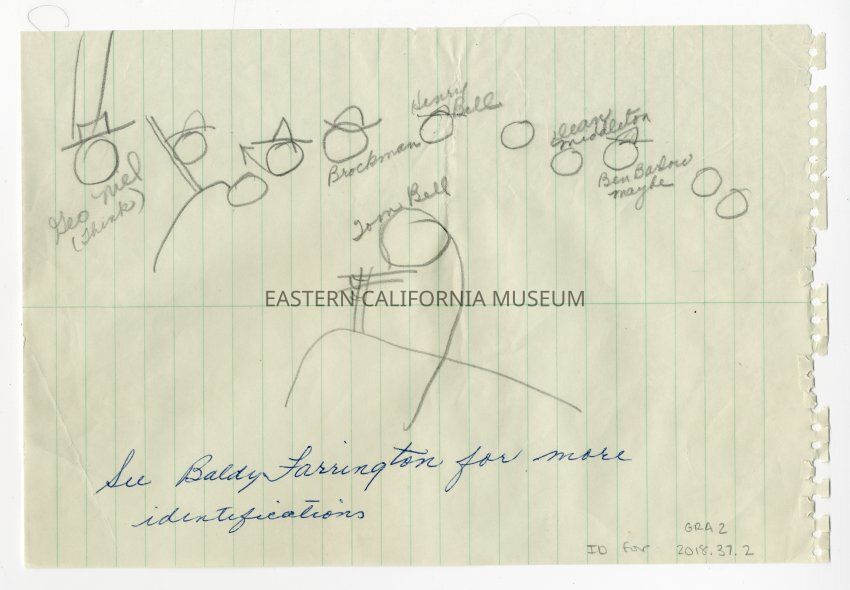 Henry
Bell
Dean
Middleton
Brockman
Geo Mel
(Think)
Ben Barlow
maybe
Tom Bell
EASTERN CALIFORNIA MUSEUM
See Baldy Farrington for more
identifications
GRA2
ID for 2018.37.2